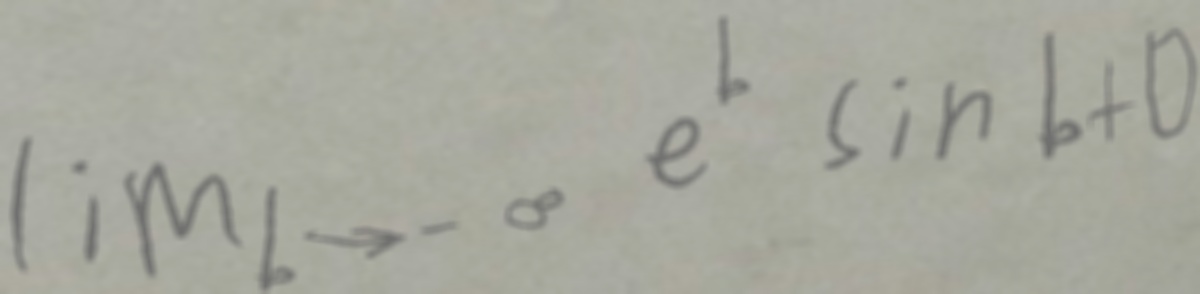 lim_{b→-∞} e^b sin b+0